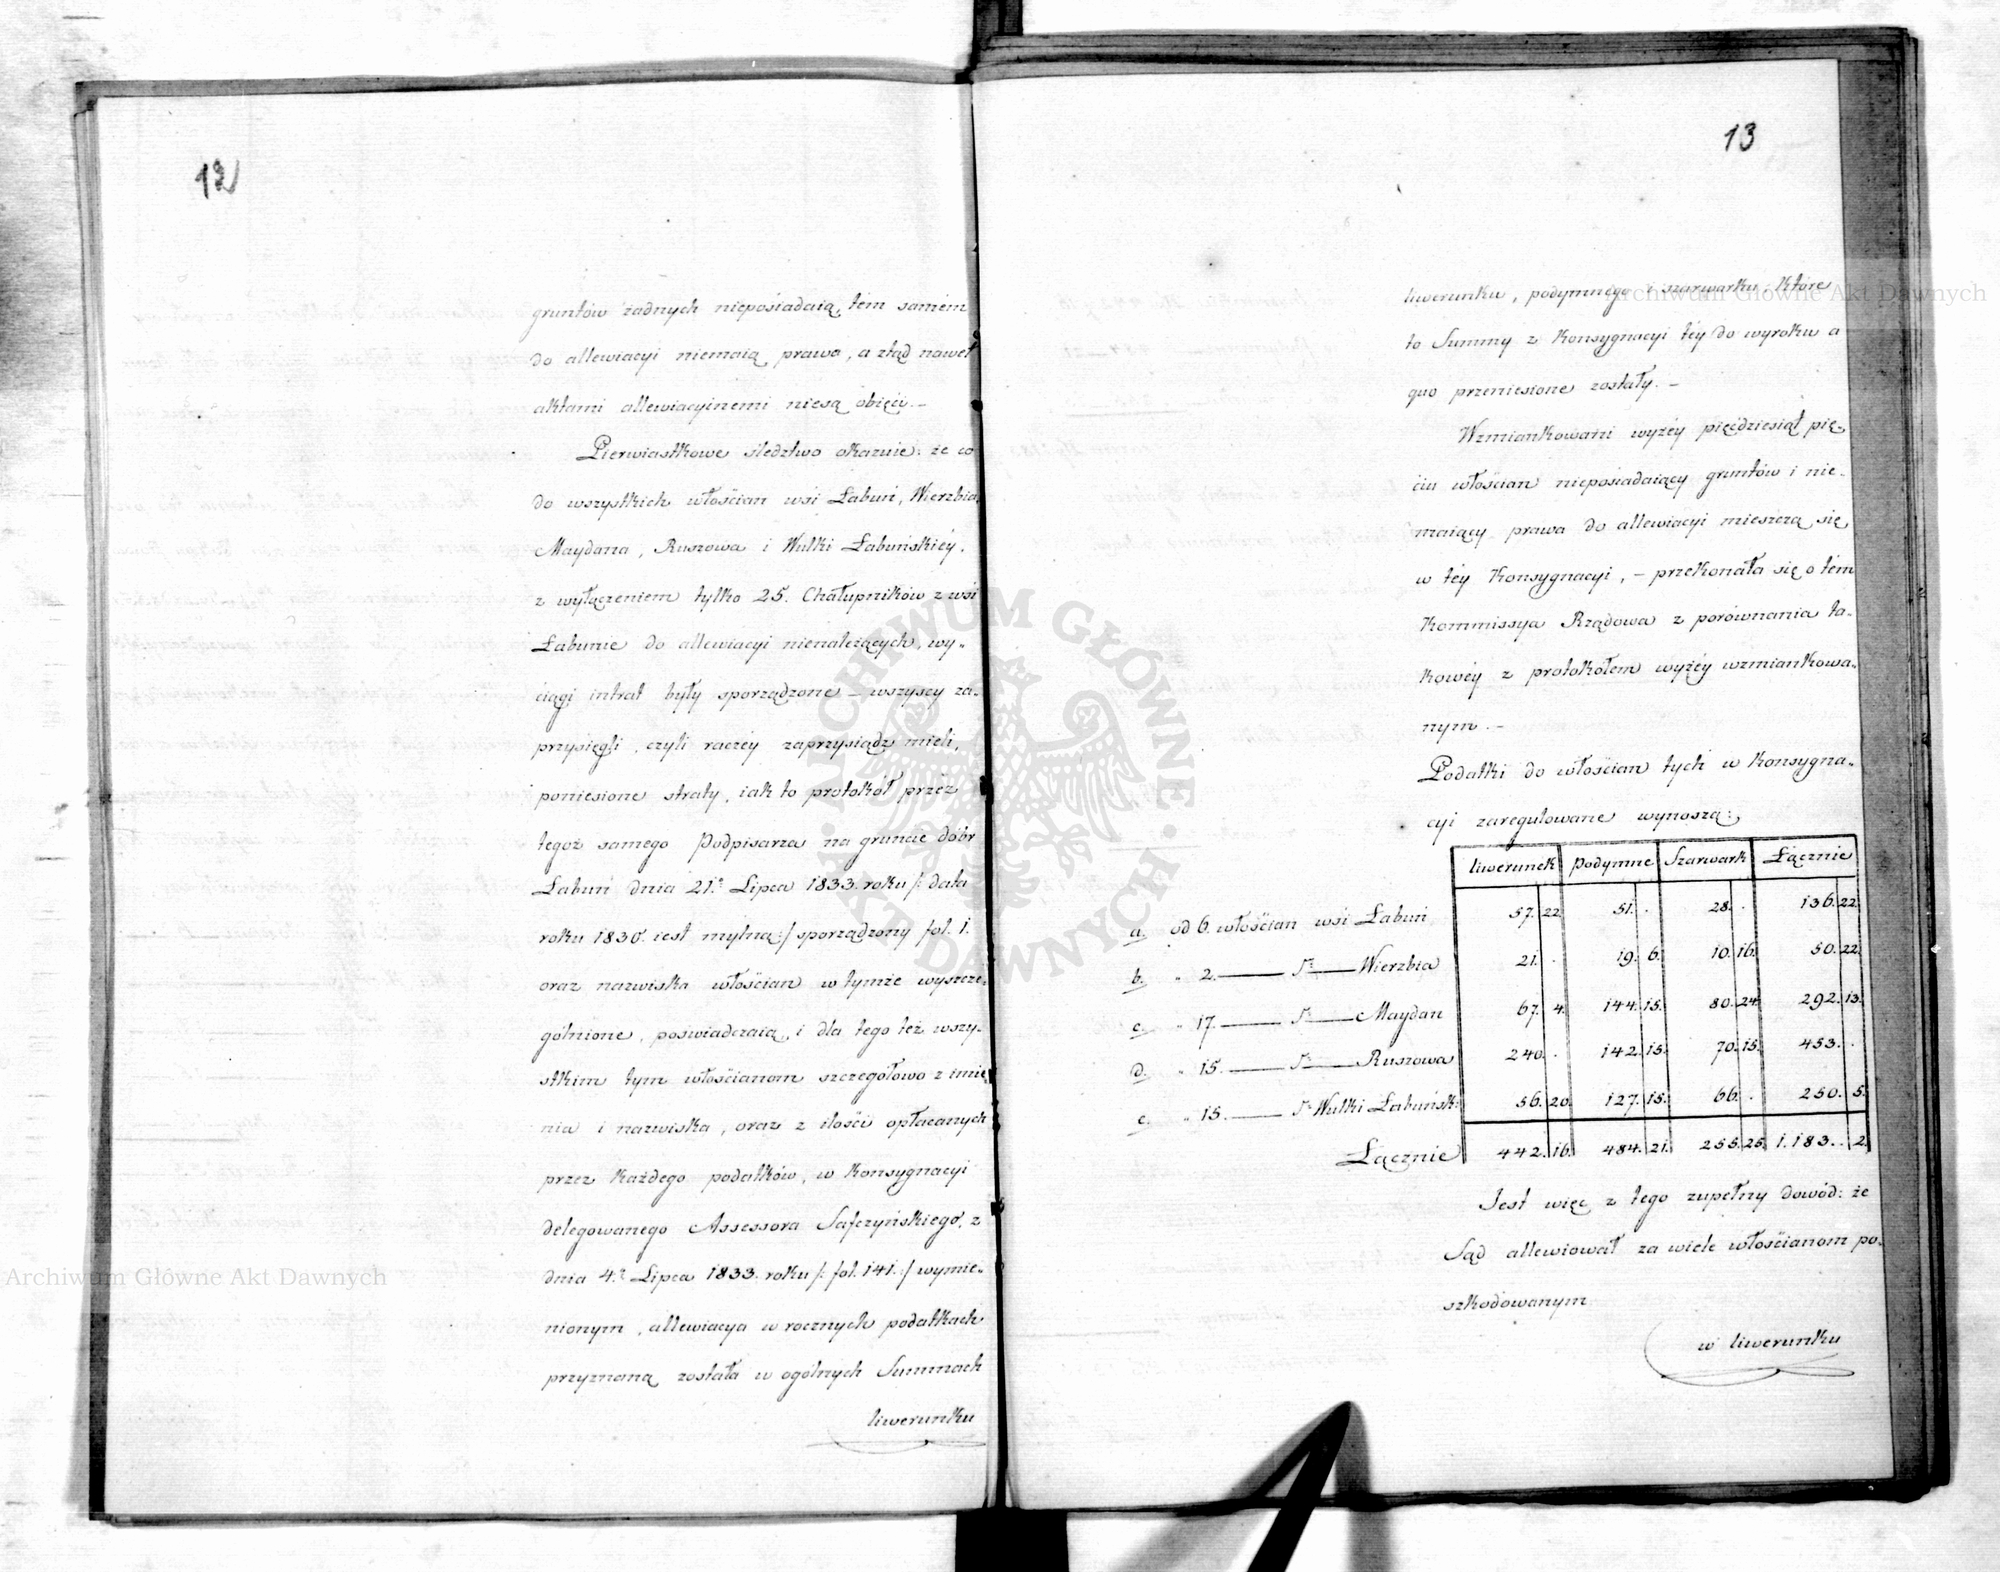 12
gruntów żadnych nieposiadaią, tém samém
do allewiacyi niemaią prawa, a ztąd nawet
aktami allewiacyinemi niesą obięci. –
Pierwiastkowe śledztwo okazuie: że co
do wszystkich włościan wsi Łabuń, Wierzbia,
Maydana, Ruszowa i Wulki Łabuńskiéy,
z wyłączeniem tylko 25. Chałupników z wsi
Łabunie do allewiacyi nienależących, wy„
ciągi intrat były sporządzone – wszyscy za„
przysięgli, czyli raczéy zaprzysiądz mieli,
poniesione straty, iak to protokół przez
tegoż samego Podpisarza na gruncie dóbr
Łabuń dnia 21.º Lipca 1833. roku /: data
roku 1830. iest mylną :/ sporządzony fol. 1.
oraz nazwiska włościan w tymże wyszcze„
gólnione, poświadczaią, i dla tego też wszy„
stkim tym włościanom szczegółowo z imie„
nia i nazwiska, oraz z ilości opłacanych
przez każdego podatków, w Konsygnacyi
delegowanego Assessora Safczyńskiego, z
dnia 4.º Lipca 1833. roku /: fol. 141. :/ wymie„
nionym, allewiacya w rocznych podatkach
przyznaną została w ogólnych Summach
liwerunku
13
liwerunku, podymnego i szarwarku, które
to Summy z Konsygnacyi téy do wyroku a
quo przeniesione zostały. –
Wzmiankowani wyżéy pięćdziesiąt pię„
ciu włościan nieposiadaiący gruntów i nie„
maiący prawa do allewiacyi mieszczą się
w téy Konsygnacyi, – przekonała się o tém
Kommissya Rządowa z porównania ta„
kowéy z protokołem wyżéy wzmiankowa„
nym. –
Podatki do włościan tych w Konsygna„
cyi zaregulowane wynoszą:
liwerunek podymne Szarwark Łącznie
a. od 6. włościan wsi Łabuń 57. 22. 51. . 28. . 136. 22.
b. „ 2. — Dº — Wierzbia 21. . 19. 6. 10. 16. 50. 22.
c. „ 17. — Dº — Maydan 67. 4. 144. 15. 80. 24. 292. 13.
d. „ 15. — Dº — Ruszowa 240. . 142. 15. 70. 15. 453. .
e. „ 15. — Dº Wulki Łabuńsk: 56. 20. 127. 15. 66. . 250. 5.
Łącznie 442. 16. 484. 21. 255. 25. 1.183. . 2.
Jest więc z tego zupełny dowód: że
Sąd allewiował za wiele włościanom po„
szkodowanym
w liwerunku
Archiwum Główne Akt Dawnych
Archiwum Główne Akt Dawnych
ARCHIWUM GŁÓWNE AKT DAWNYCH